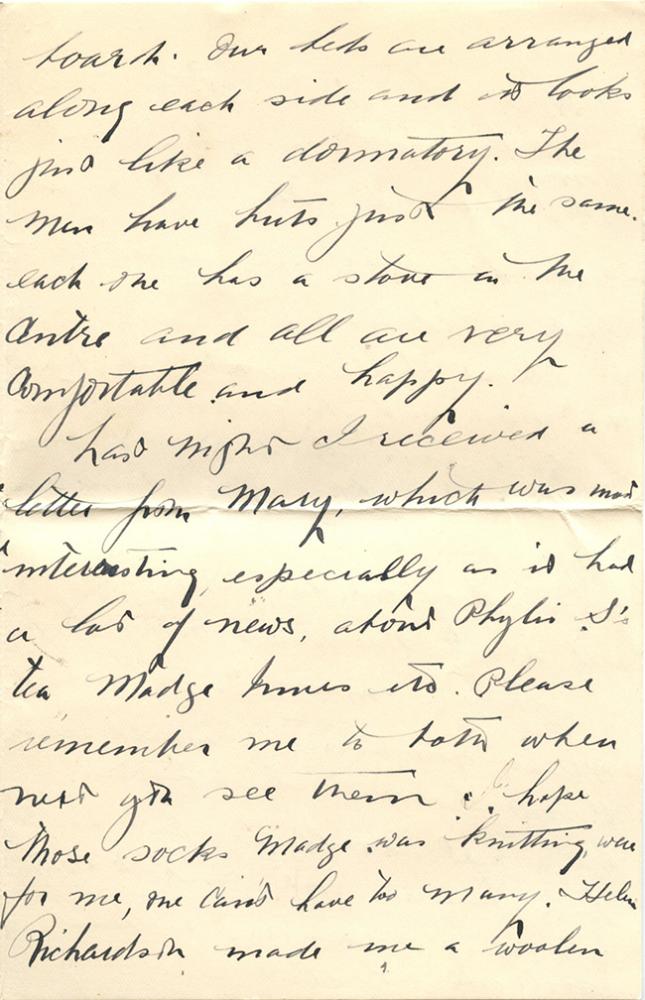 board. Our beds are arranged
along each side and it looks
just like a dormatory. The
men have huts just the same.
each one has a stove in the
Centre and all are very
Comfortable and happy.
Last night I received a
letter from Mary, which was most
interesting, especially as it had
a lot of news, about Phylis S's
tea Madge etc. Please
remember me to both when
next you see them & I hope
those socks Madge was knitting, were
for me, one can't have too many. Helen
Richardson made me a woolen